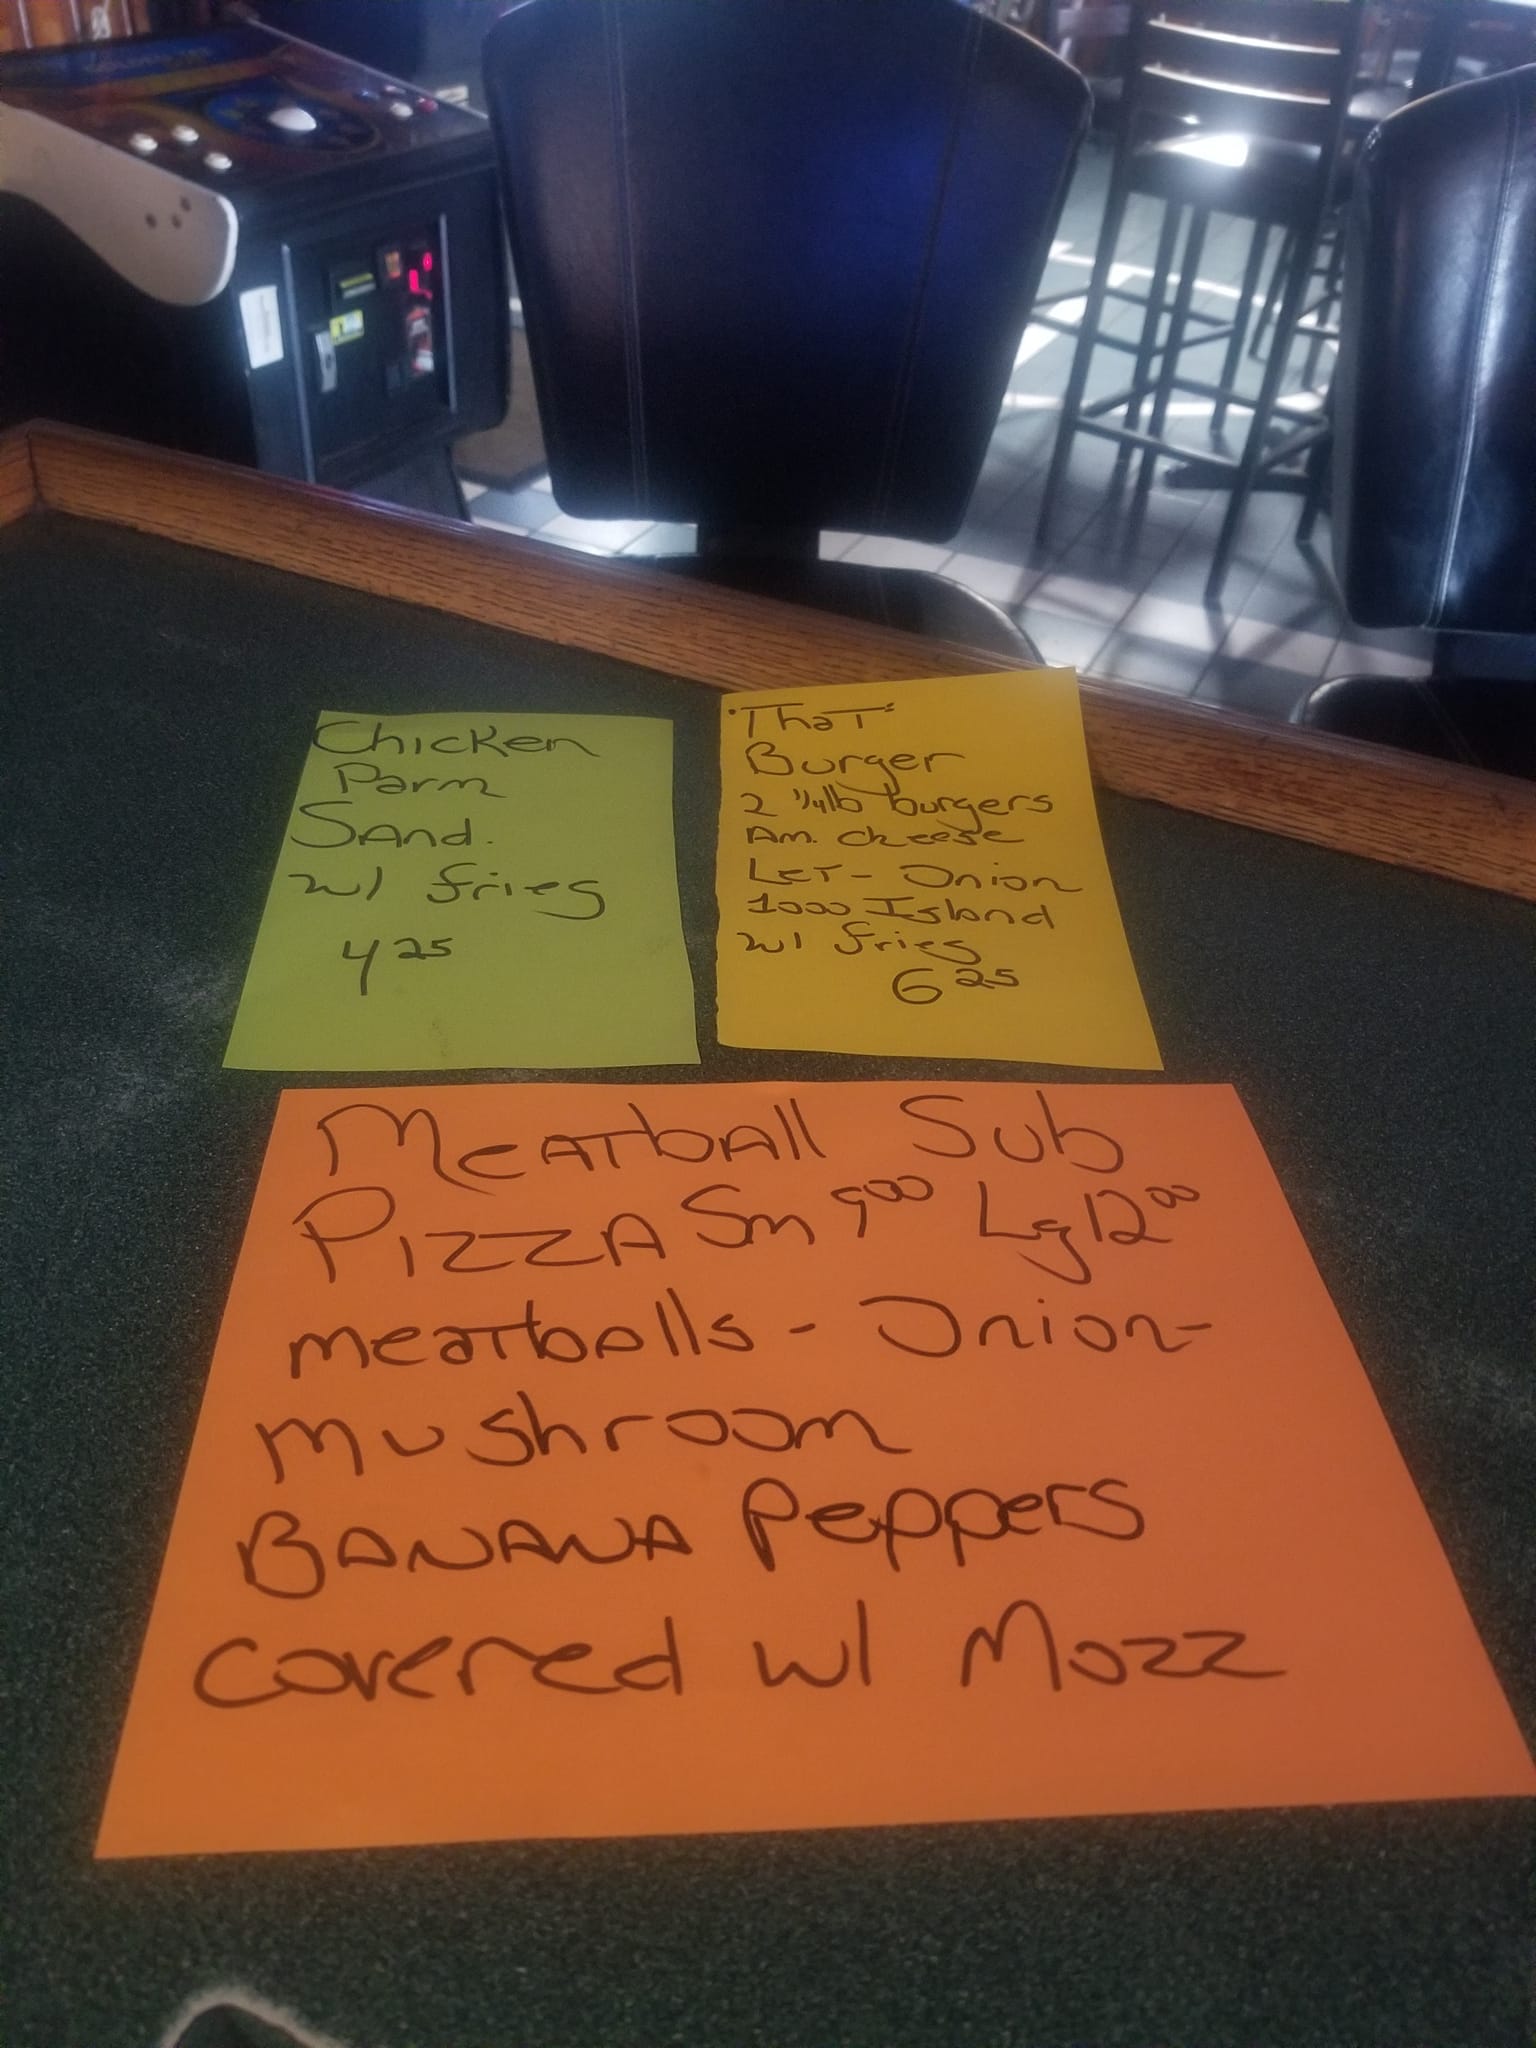 Chicken
Parm
Sand.
w/ fries
4 25
"That"
Burger
2 1/4lb burgers
Am. cheese
Let - Onion
1000 Island
w/ fries
6 25
Meatball Sub
Pizza Sm 9 00 Lg 12 00
meatballs - Onion -
mushroom
Banana Peppers
covered w/ Mozz